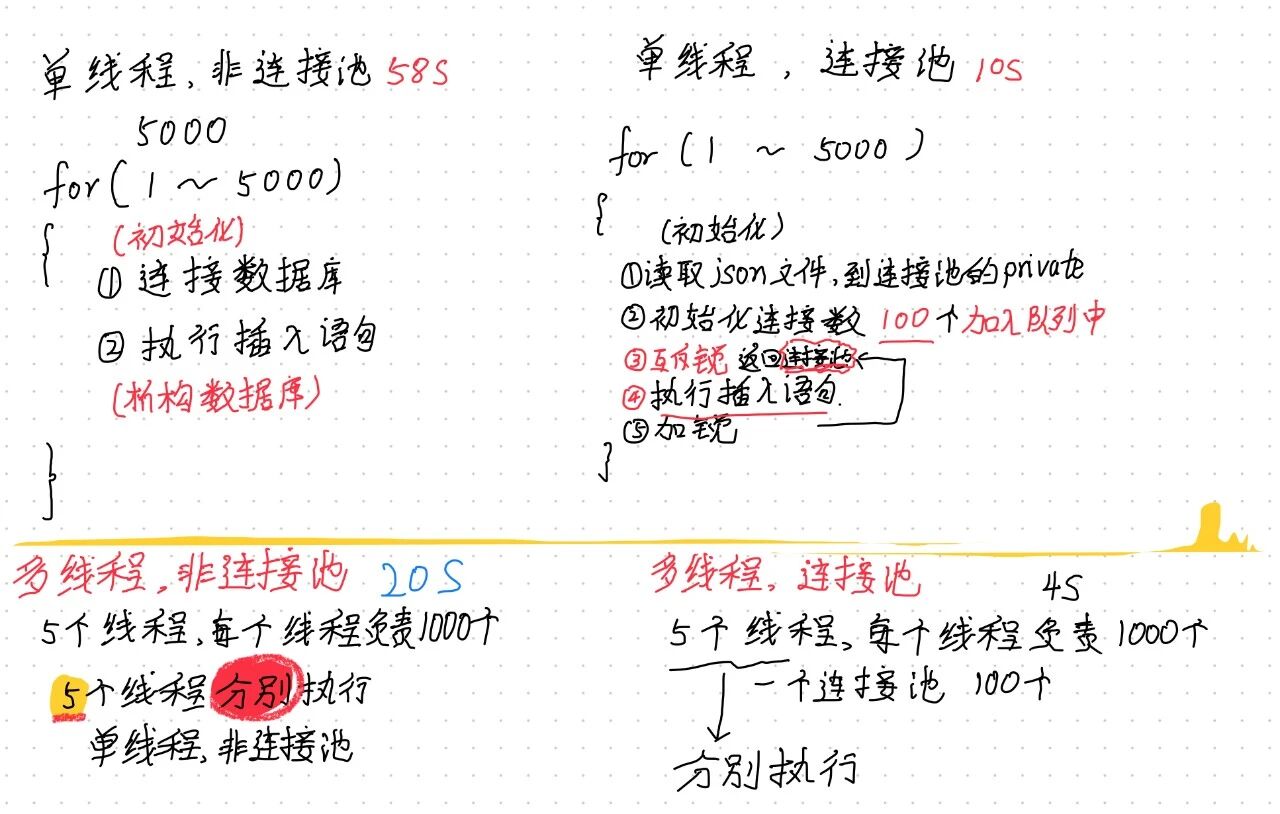 单线程,非连接池 58S
5000
for(1～5000)
{
(初始化)
① 连接数据库
② 执行插入语句
(析构数据库)
}
单线程,连接池 10S
for(1 ～ 5000)
{
(初始化)
①读取json文件,到连接池的private
②初始化连接数 100个加入队列中
③互斥锁 返回连接池
④执行插入语句.
⑤加锁
}
多线程,非连接池 20S
5个线程,每个线程负责1000个
5个线程分别执行
单线程,非连接池
多线程,连接池 4S
5个线程,每个线程负责1000个
一个连接池 100个
分别执行